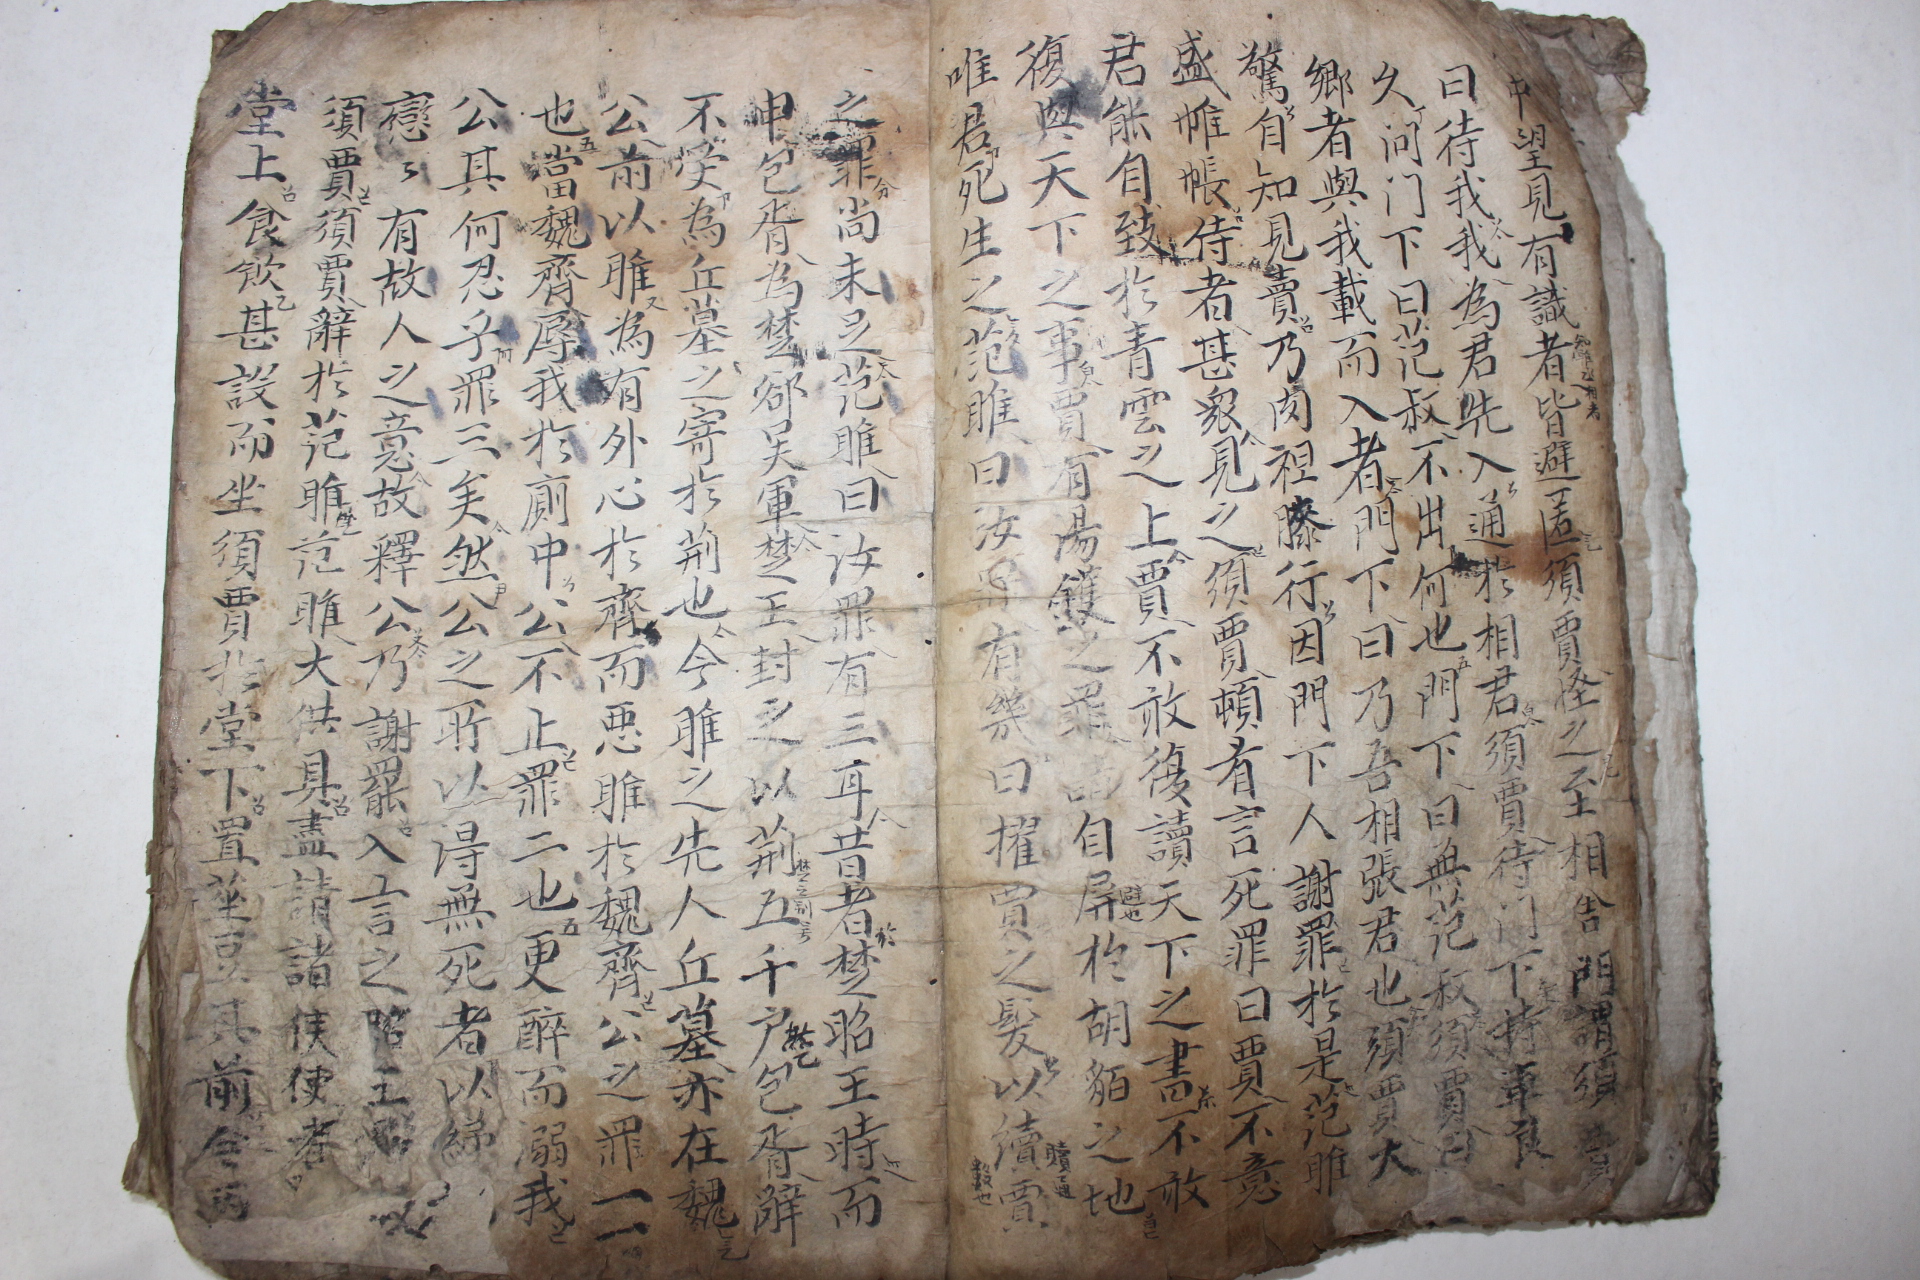 中望見有識者皆避匿須賈怪之至相舍門謂須賈
曰待我我為君先入通於相君須賈待門下持車良
久问门下曰范叔不出何也門下曰無范叔須賈曰
鄉者與我載而入者門下曰乃吾相張君也須賈大
驚自知見賣乃肉袒膝行因門下人謝罪於是范睢
盛帷帳侍者甚衆見之須賈頓首言死罪曰賈不意
君能自致於青雲之上賈不敢復讀天下之書不敢
復與天下之事賈有湯鑊之罪請自屏於胡貊之地
唯君死生之范睢曰汝罪有幾曰擢賈之髮以續賈
之罪尚未足范睢曰汝罪有三耳昔者楚昭王時而
申包胥為楚郤吴軍楚王封之以荊五千户包胥辭
不受為丘墓之寄於荊也今睢之先人丘墓亦在魏
公前以睢為有外心於齊而悪睢於魏齊公之罪一
也當魏齊辱我於廁中公不止罪二也更醉而溺我
公其何忍乎罪三矣然公之所以得無死者以綈
戀々有故人之意故釋公乃謝罷入言之昭王
須賈須賈辭於范睢范睢大供具盡請諸侯使者
堂上食飲甚設而坐須賈於堂下置莝豆其前令両